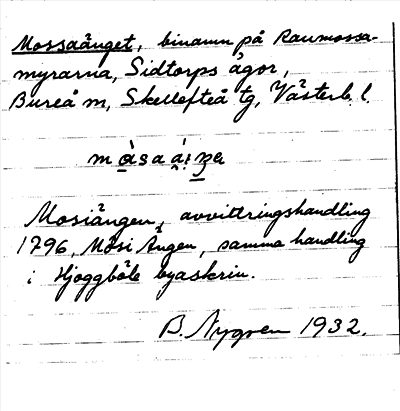 Mossaänget, binamn på Raumossa-
myrarna, Sidtorps ägor,
Bureå sn, Skellefteå tg, Västerb. l.
Mosiängen, avvittringshandling
1796, Mósi Ängen, samma handling
i Hjoggböle byaskrin.
B. Nygren 1932.